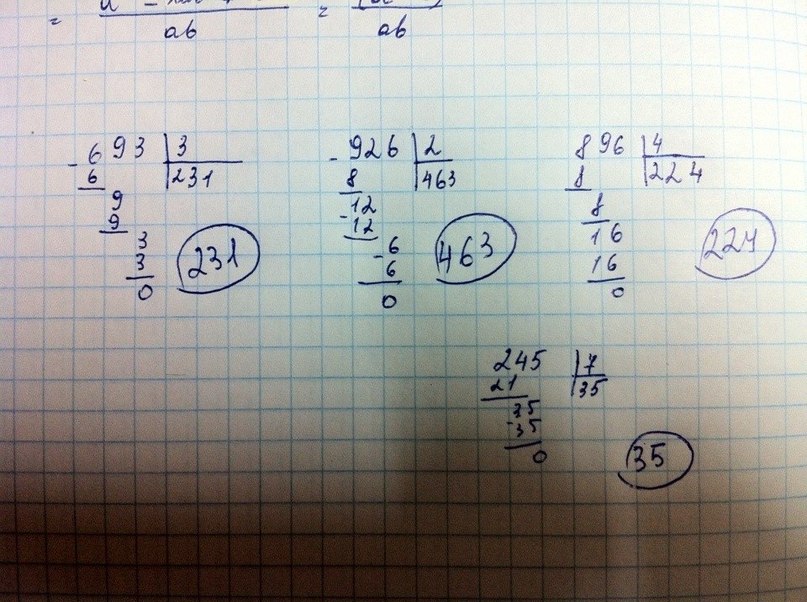 = ab = ab
- 693 | 3
6 231
9
9
3
3
0
231
- 926 | 2
8 463
12
- 12
- 6
6
0
463
896 | 4
8 224
8
16
16
0
224
245 | 7
21 35
35
- 35
0
35